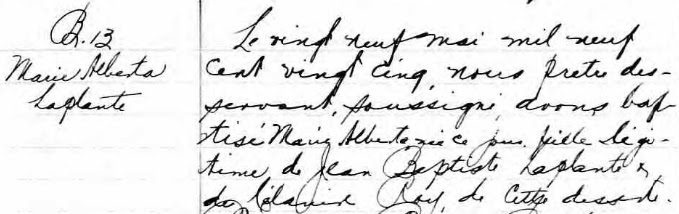 B. 13
Marie Alberta
Laplante
Le vingt neuf mai mil neuf
cent vingt cinq, nous prêtre des-
servant, soussigné, avons bap-
tisé Marie Alberta née ce jour, fille légi-
time de Jean Baptiste Laplante &
de Roy, de cette desserte.